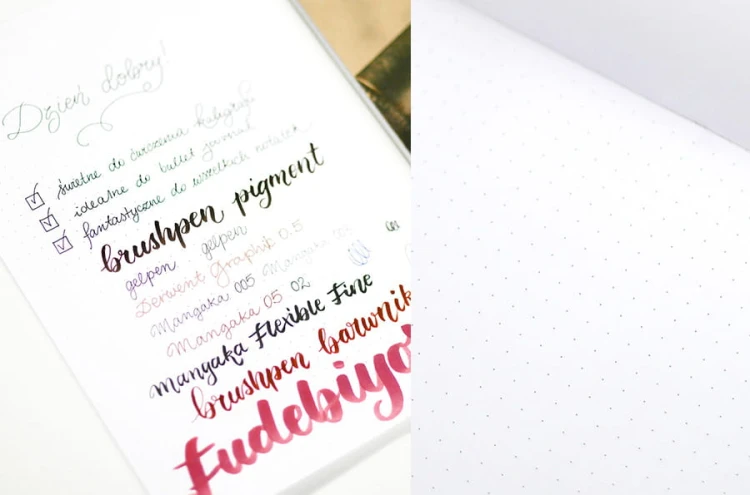 Dzień dobry!
świetne do ćwiczenia kaligrafii
idealne do bullet journal
fantastyczne do wszelkich notatek
brushpen pigment
gelpen gelpen
Derwent Graphik 0.5
Mangaka 005 Mangaka
Mangaka 05 02
Mangaka Flexible Fine
brushpen barwnik
Fudebiyo